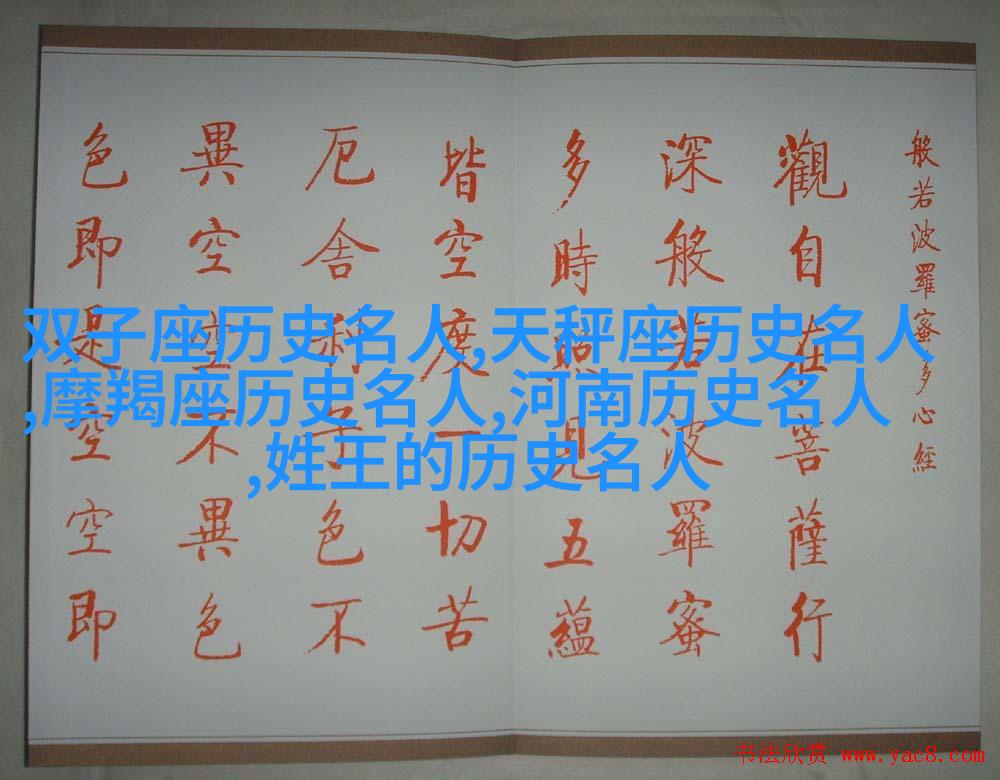 般若波羅蜜多心經
觀自在菩薩行
深般若波羅蜜
多時照見五蘊
皆空度一切苦
厄舍利子色不
異空空不異色
色即是空空即
双子座历史名人,天秤座历史名人
,摩羯座历史名人,河南历史名人
,姓王的历史名人
书法欣赏 www.yac8.com